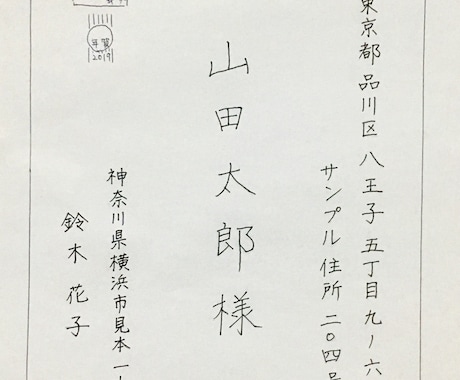 東京都品川区八王子五丁目九ノ六
サンプル住所二〇四号
山田太郎様
神奈川県横浜市見本一ー
鈴木花子
年賀
2019